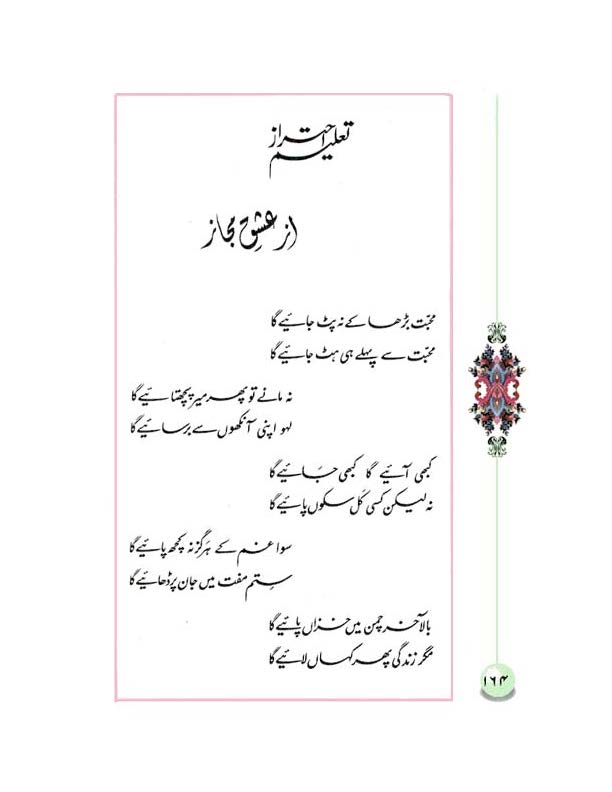 تعلیم احتراز
از عشقِ مجاز
محبّت بڑھا کے نہ پٹ جائیے گا
محبّت سے پہلے ہی ہٹ جائیے گا
نہ مانے تو پھر میر پچھتائیے گا
لہو اپنی آنکھوں سے برسائیے گا
کبھی آئیے گا کبھی جائیے گا
نہ لیکن کسی کَل سکوں پائیے گا
سوا غم کے ہرگز نہ کچھ پائیے گا
ستم مفت میں جان پر ڈھائیے گا
بالآخر چمن میں خزاں پائیے گا
مگر زندگی پھر کہاں لائیے گا
۱۶۴